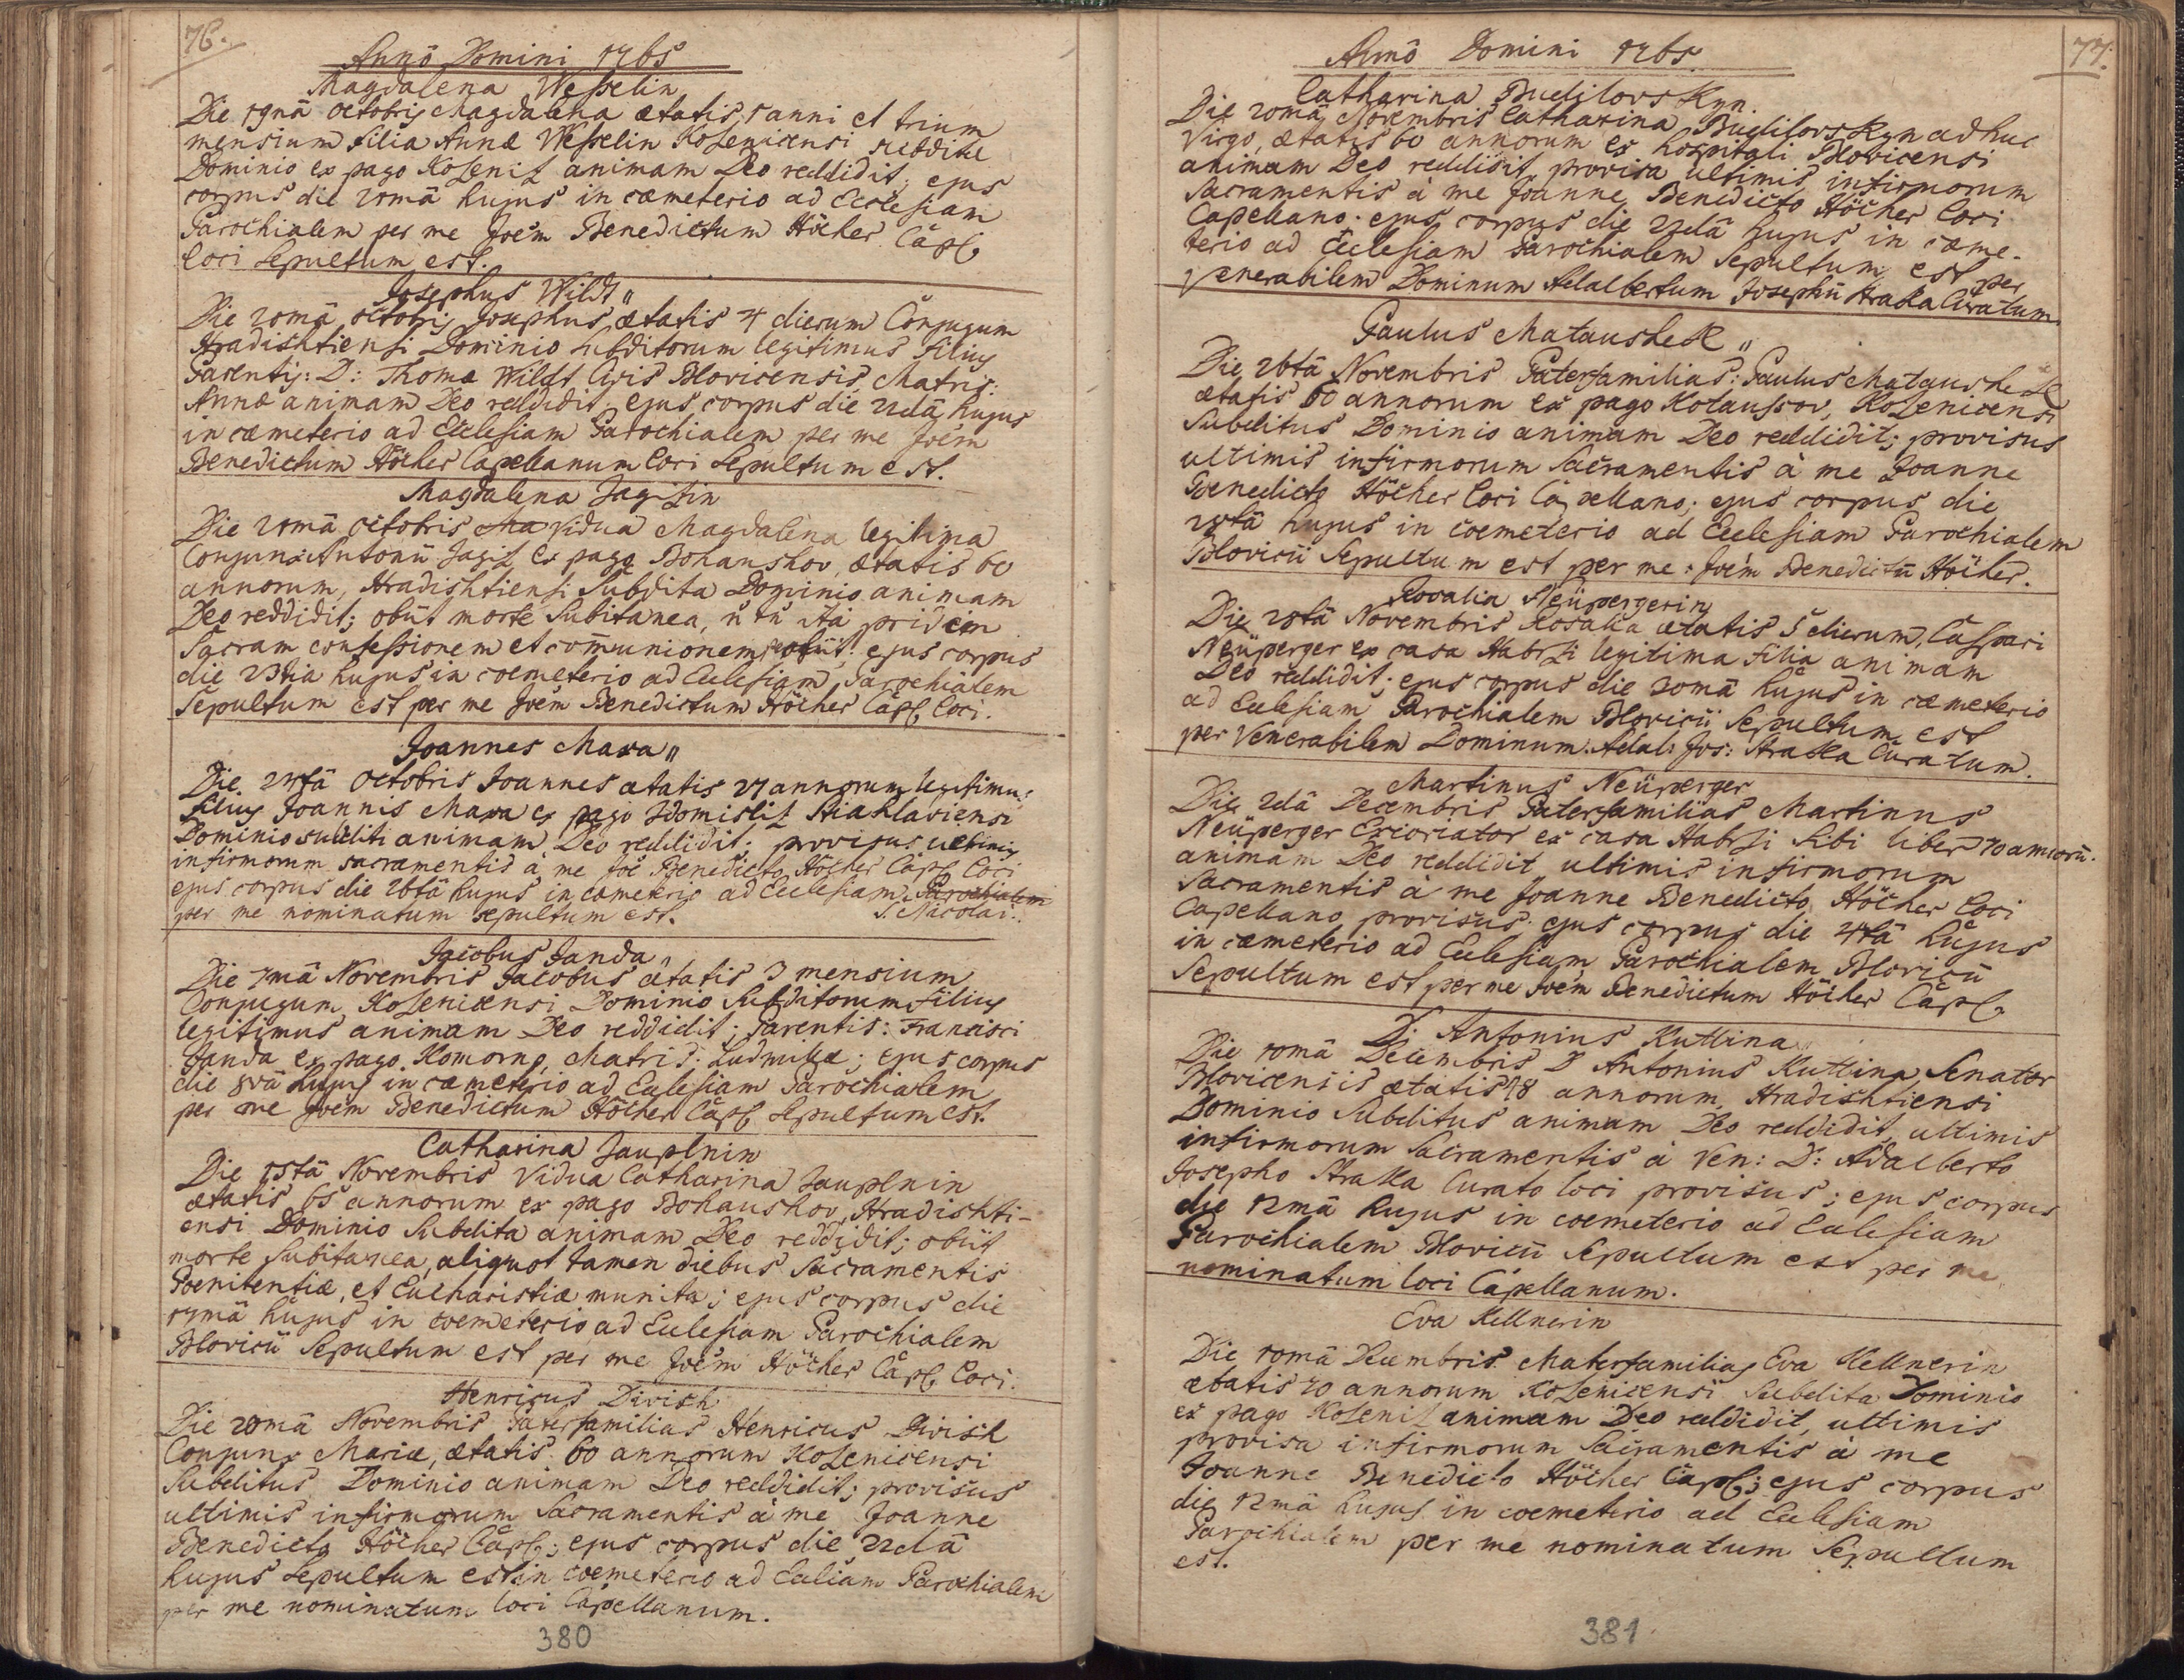 76.
Annô Domini 1765
Magdalena Weßelin
Die 19nâ octobris Magdalena ætatis 1 anni et trium
mensium filia Annæ Weßelin Koẜenicensi subditæ
Dominio ex pago Koẜeniz animam Deo reddidit; ejus
corpus die 20mâ hujus in cæmeterio ad Ecclesiam
Parochialem per me Joêm Benedictum Höcher Capl:
loci sepultum est.
Josephus Wildt
Die 20mâ octobris Josephus ætatis 4 dierum Conjugum
Hradishtiensi Dominio subditorum legitimus filius
Parentis: D: Thomæ Wildt Civis Blovicensis, Matris:
Annæ animam Deo reddidit; ejus corpus die 22dâ hujus
in cæmeterio ad Ecclesiam Parochialem per me Joêm
Benedictum Höcher Capellanum loci Sepultum est.
Magdalena Jagizin
Die 20mâ octobris vidua Magdalena legitima
Conjunx Antonii Jagiz ex pago Bohaushov, ætatis 60
annorum, Hradishtiensi Subdita Dominio animam
Deo reddidit; obiit morte Subitanea, pridem
Sacram confeßionem et com̄unionem ejus corpus
die 23tia hujus in coemeterio ad Ecclesiam Parochialem
Sepultum est per me Joêm Benedictum Höcher Capl: loci.
Joannes Maxa
Die 24tâ octobris Joannes ætatis 27 annorum legitimus
filius Joannis Maxa ex pago Zdomisliz Stiahlaviensi
Dominio subditi animam Deo reddidit; provisus ultimis
infirmorum sacramentis à me Joê Benedicto Höcher Capl: loci
ejus corpus die 26tâ hujus in cæmeterio ad Ecclesiam Parochialem
per me nominatum sepultum est. S. Nicolai:
Jacobus Janda
Die 7mâ Novembris Jacobus ætatis 3 mensium
Conjugum Koẜenicensi Dominio Subditorum filius
legitimus animam Deo reddidit; Parentis: Francisci
Janda ex pago Komorno, Matris: Ludmillæ; ejus corpus
die 8vâ hujus in cæmeterio ad Ecclesiam Parochialem
per me Joêm Benedictum Höcher Capl: sepultum est.
Catharina Jauplnin
Die 15tâ Novembris Vidua Catharina Jauplnin
ætatis 65 annorum ex pago Bohaushov, Hradishti-
ensi Dominio Subdita animam Deo reddidit; obiit
morte Subitanea, aliquot tamen diebus Sacramentis
Poenitentiæ, et Eucharistiæ munita; ejus corpus die
17mâ hujus in coemeterio ad Ecclesiam Parochialem
Blovicii Sepultum est per me Joêm Höcher Capl: loci.
Henricus Divish
Die 20mâ Novembris Paterfamilias Henricus Divish
Conjunx Mariæ, ætatis 60 annorum Koẜenicensi
Subditus Dominio animam Deo reddidit; provisus
ultimis infirmorum Sacramentis à me Joanne
Benedicto Höcher Capl:; ejus corpus die 22dâ
hujus sepultum est in coemeterio ad Eccliam Parochialem
per me nominatum loci Capellanum.
380
77.
Annô Domini 1765.
Catharina Budilovskyn
Die 20mâ Novembris Catharina Budilovskyn adhuc
Virgo, ætatis 60 annorum ex hospitali Blovicensi
animam Deo reddidit, provisa ultimis infirmorum
Sacramentis à me Joanne Benedicto Höcher loci
Capellano; ejus corpus die 22dâ hujus in cæme-
terio ad Ecclesiam Parochialem Sepultum est per
Venerabilem Dominum Adalbertum Josephū Straka Curatum.
Paulus Mataushek
Die 26tâ Novembris Paterfamilias: Paulus Mataushek
ætatis 60 annorum ex pago Kotaussov, Koẜenicensi
Subditus Dominio animam Deo reddidit; provisus
ultimis infirmorum Sacramentis à me Joanne
Benedicto Höcher loci Capellano; ejus corpus die
28tâ hujus in coemeterio ad Ecclesiam Parochialem
Blovicii Sepultum est per me: Joêm Benedictū Höcher.
Rosalia Neüpergerin
Die 28tâ Novembris Rosalia ætatis 5 dierum, Caspari
Neüperger ex casa Habrzi legitima filia animam
Deo reddidit; ejus corpus die 30mâ hujus in cæmeterio
ad Ecclesiam Parochialem Blovicii Sepultum est
per Venerabilem Dominum: Adal: Jos: Straka Curatum.
Martinus Neüperger
Die 2dâ Decembris Paterfamilias Martinus
Neüperger Excoriator ex casa Habrzi Sibi liber 70 annorū.
animam Deo reddidit, ultimis infirmorum
Sacramentis à me Joanne Benedicto Höcher loci
Capellano provisus; ejus corpus die 4tâ hujus
in cæmeterio ad Ecclesiam Parochialem Blovicii
Sepultum est per me Joêm Benedictum Höcher Capl:
D: Antonius Kuttina
Die 10mâ Decembris D Antonius Kuttina Senator
Blovicensis ætatis 48 annorum, Hradishtiensi
Dominio Subditus animam Deo reddidit ultimis
infirmorum Sacramentis à Ven: D: Adalberto
Josepho Straka Curato loci provisus; ejus corpus
die 12mâ hujus in coemeterio ad Ecclesiam
Parochialem Blovicii Sepultum est per me
nominatum loci Capellanum.
Eva Kellnerin
Die 10mâ Decembris Materfamilias Eva Kellnerin
ætatis 70 annorum Koẜenicensi Subdita Dominio
ex pago Koẜeniz animam Deo reddidit, ultimis
provisa infirmorum Sacramentis à me
Joanne Benedicto Höcher Capl:; ejus corpus
die 12mâ hujus in coemeterio ad Ecclesiam
Parochialem per me nominatum Sepultum
est.
381